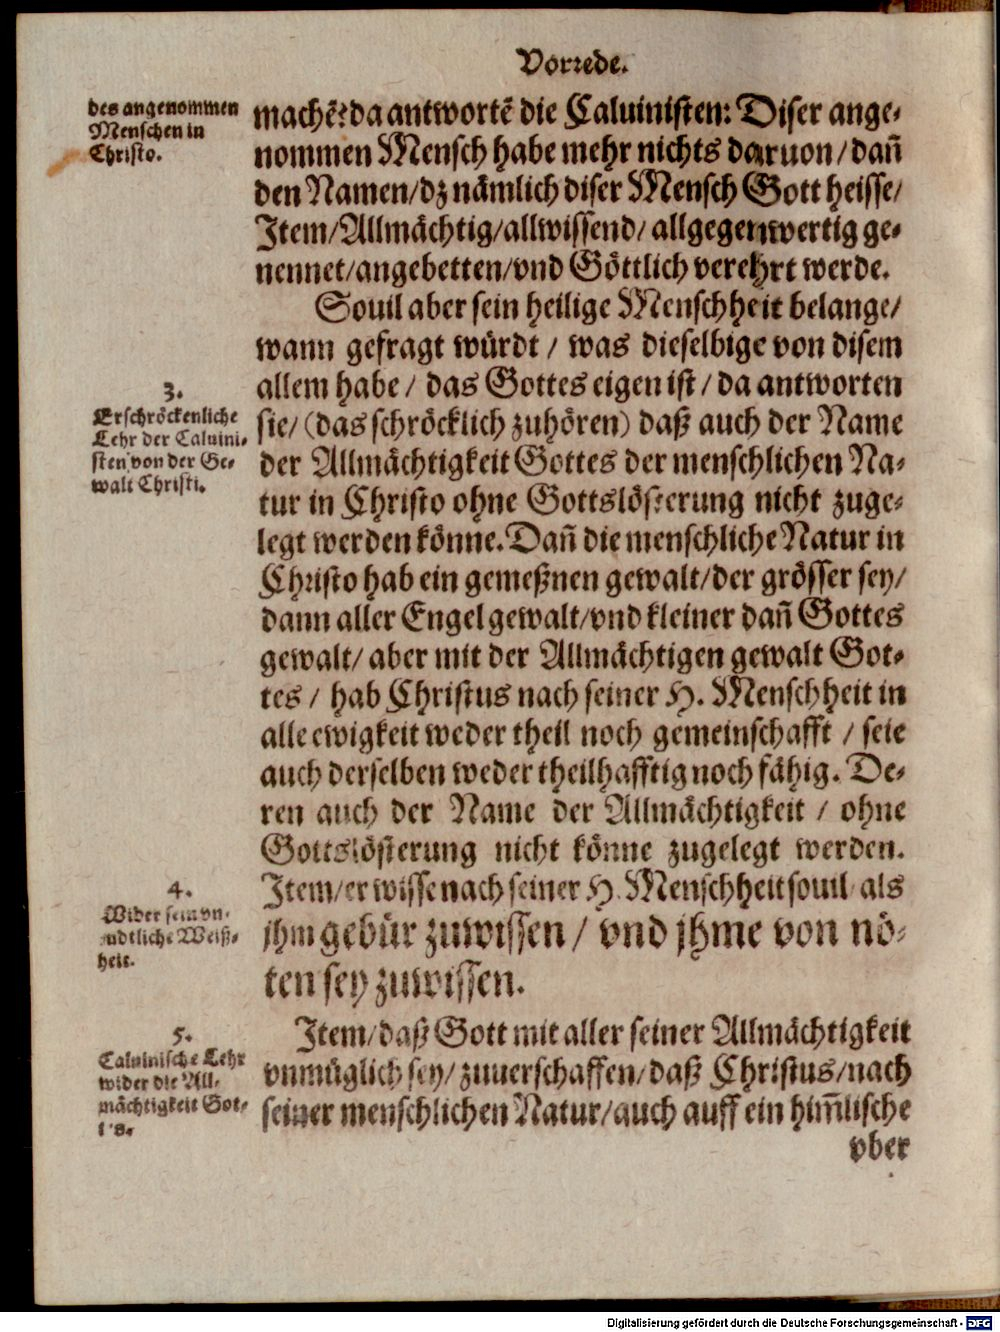 Vorrede.
des angenommen
Menschen in
Christo.
machē? da antwortē die Caluinisten: Diser ange-
nommen Mensch habe mehr nichts daruon / dañ
den Namen / dz nämlich diser Mensch Gott heisse /
Item / Allmächtig / allwissend / allgegenwertig ge-
nennet / angebetten / vnd Göttlich verehrt werde.
Souil aber sein heilige Menschheit belange /
wann gefragt würdt / was dieselbige von disem
allem habe / das Gottes eigen ist / da antworten
3.
Erschröckenliche
Lehr der Caluini-
sten von der Ge-
walt Christi.
sie / (das schröcklich zuhören) daß auch der Name
der Allmächtigkeit Gottes der menschlichen Na-
tur in Christo ohne Gottslösterung nicht zuge-
legt werden könne. Dañ die menschliche Natur in
Christo hab ein gemeßnen gewalt / der grösser sey /
dann aller Engel gewalt / vnd kleiner dañ Gottes
gewalt / aber mit der Allmächtigen gewalt Got-
tes / hab Christus nach seiner H. Menschheit in
alle ewigkeit weder theil noch gemeinschafft / seie
auch derselben weder theilhafftig noch fähig. De-
ren auch der Name der Allmächtigkeit / ohne
Gottslösterung nicht könne zugelegt werden.
4.
Wider sein vn-
endtliche Weiß-
heit.
Item / er wisse nach seiner H. Menschheit souil als
jhm gebür zuwissen / vnd jhme von nö-
ten sey zuwissen.
5.
Caluinische Lehr
wider die All-
mächtigkeit Got-
tes.
Item / daß Gott mit aller seiner Allmächtigkeit
vnmüglich sey / zuuerschaffen / daß Christus / nach
seiner menschlichen Natur / auch auff ein him̃lische
vber
Digitalisierung gefördert durch die Deutsche Forschungsgemeinschaft - DFG